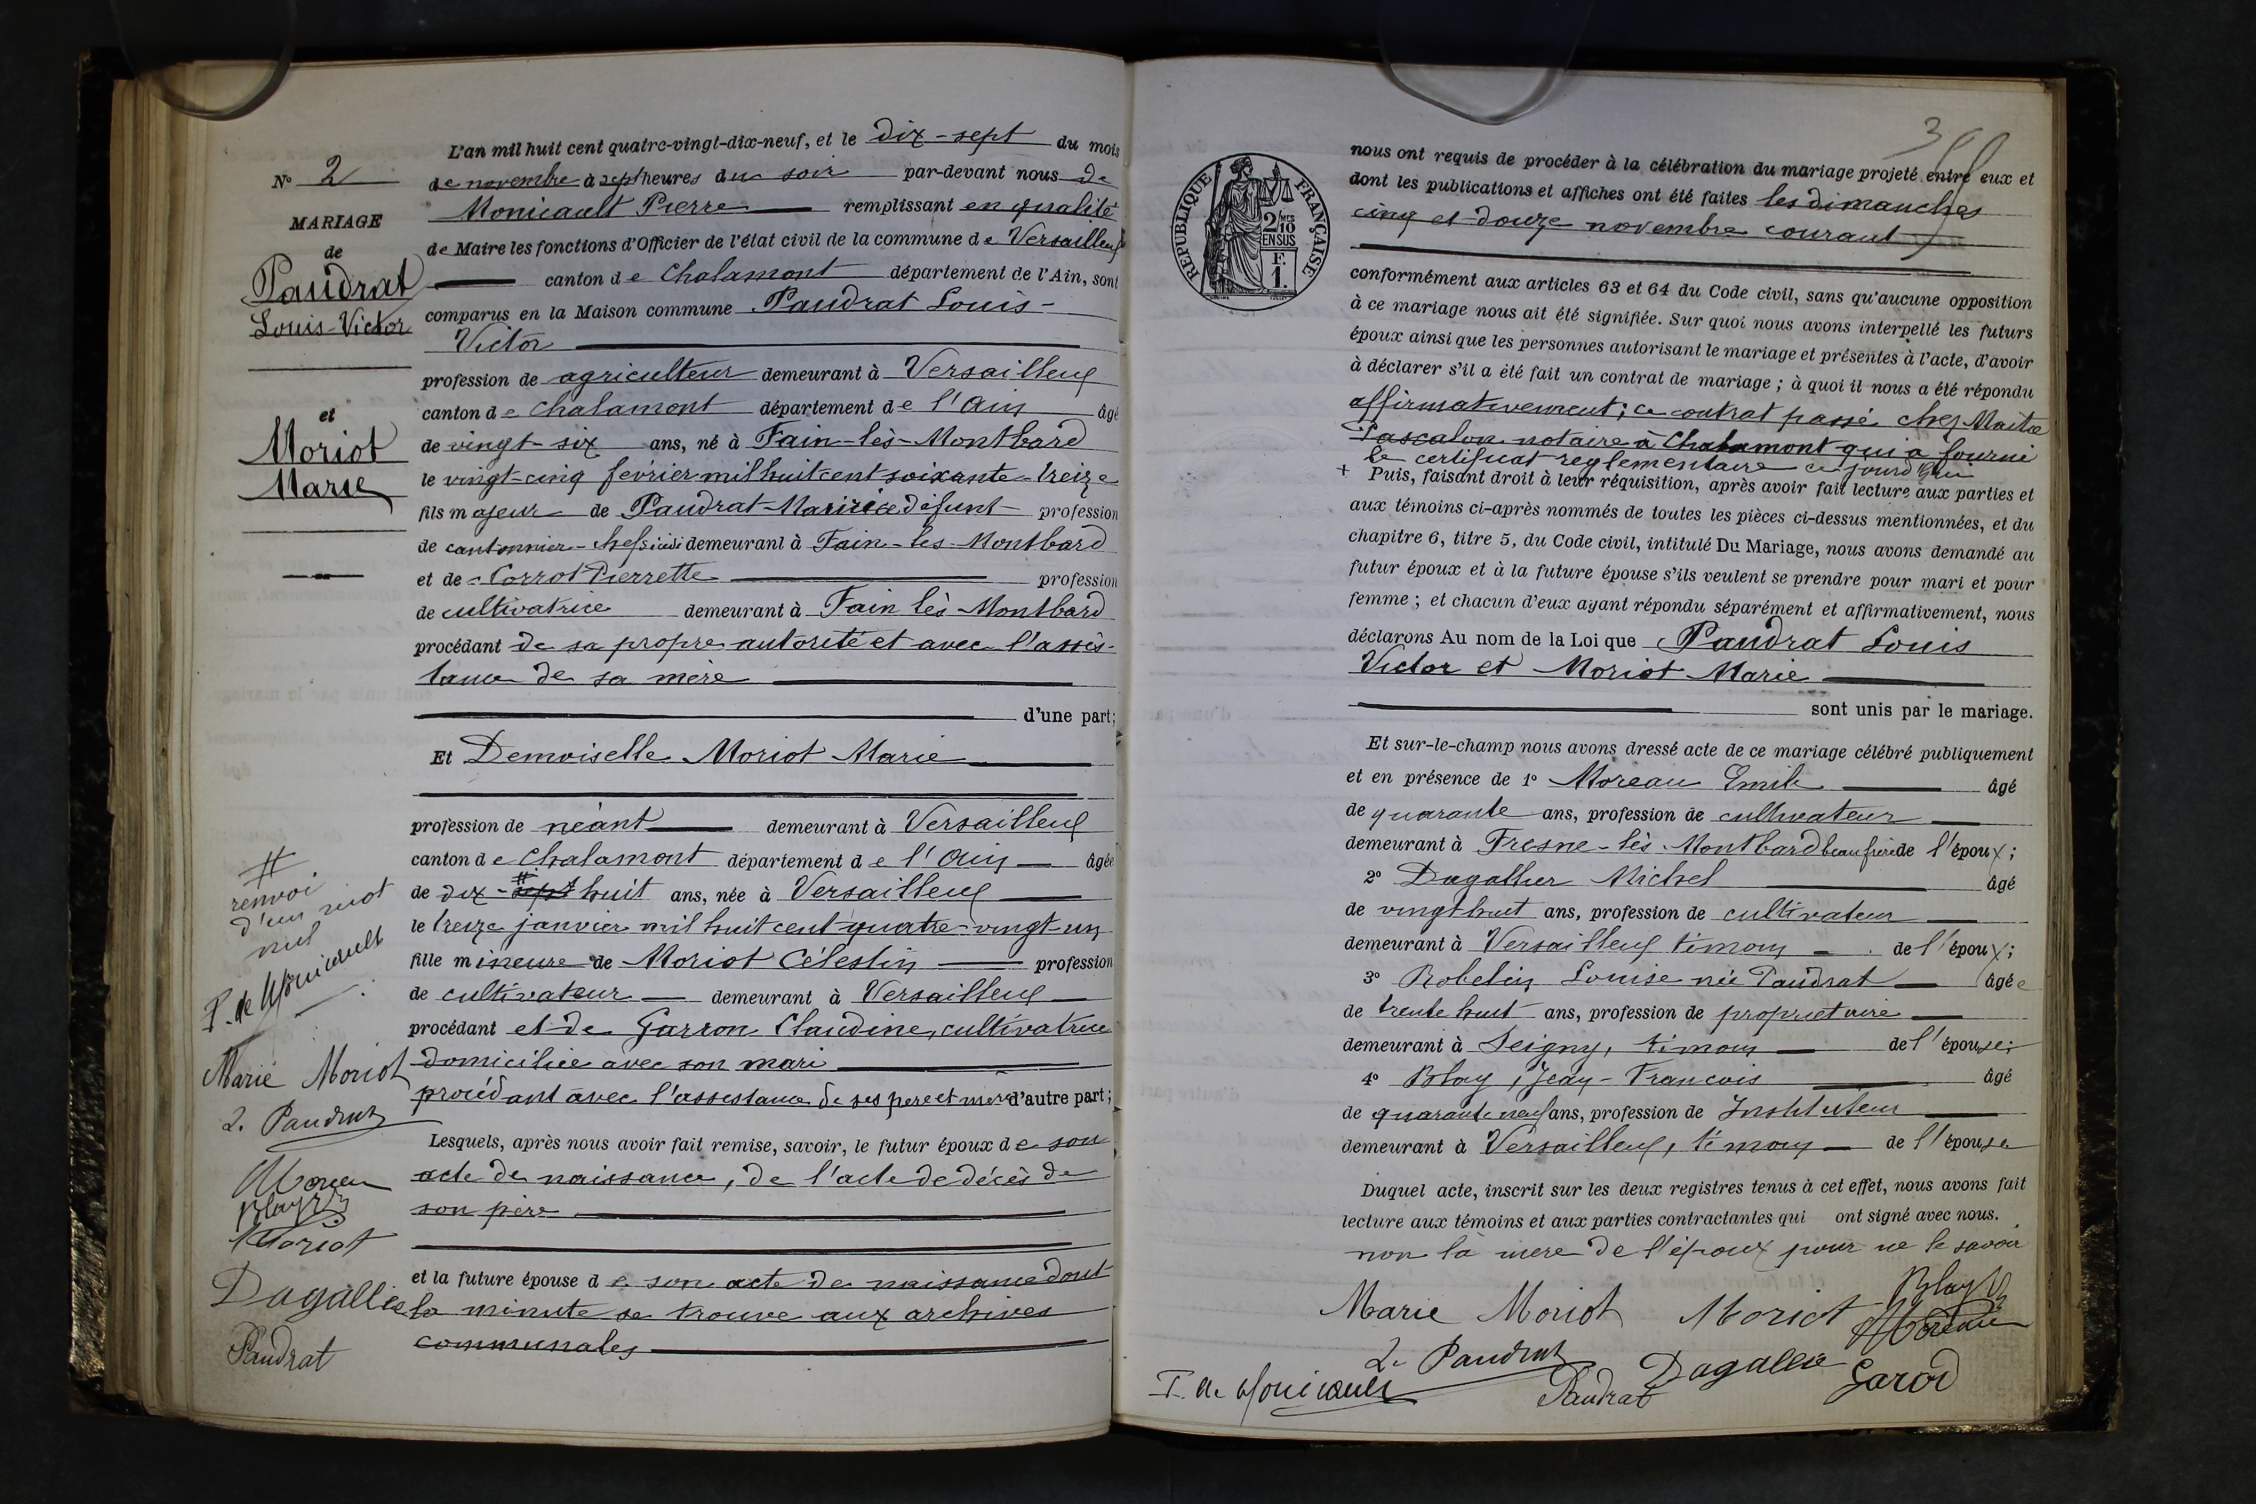 N° 2
MARIAGE
de
Paudrat
Louis-Victor
et
Moriot
Marie
#
renvoi
d'un mot
nul
P. de Monicault
Marie Moriot
L. Paudrat
Moreau
Blay
Moriot
Dagallier
Paudrat
L'an mil huit cent quatre-vingt-dix-neuf, et le dix-sept du mois
de novembre à sept heures du soir par-devant nous de
Monicault Pierre remplissant en qualité
de Maire les fonctions d'Officier de l'état civil de la commune de Versailleux
canton de Chalamont département de l'Ain, sont
comparus en la Maison commune Paudrat Louis-
Victor
profession de agriculteur demeurant à Versailleux
canton de Chalamont département de l'Ain âgé
de vingt-six ans, né à Fain-lès-Montbard
le vingt-cinq février mil huit cent soixante-treize
fils majeur de Paudrat Maurice défunt profession
de cantonnier-chef demeurant à Fain-les-Montbard
et de Corrot Pierrette profession
de cultivatrice demeurant à Fain lès-Montbard
procédant de sa propre autorité et avec l'assis-
tance de sa mère
d'une part;
Et Demoiselle Moriot Marie
profession de néant demeurant à Versailleux
canton de Chalamont département de l'Ain âgée
de dix-sept # huit ans, née à Versailleux
le treize janvier mil huit cent quatre-vingt-un
fille mineure de Moriot Célestin profession
de cultivateur demeurant à Versailleux
procédant et de Garron Claudine, cultivatrice
domiciliée avec son mari
procédant avec l'assistance de ses père et mère d'autre part;
Lesquels, après nous avoir fait remise, savoir, le futur époux de son
acte de naissance, de l'acte de décès de
son père
et la future épouse de son acte de naissance dont
la minute se trouve aux archives
communales
3
REPUBLIQUE FRANÇAISE
2/10 MES
EN SUS
F.
1.
nous ont requis de procéder à la célébration du mariage projeté entre eux et
dont les publications et affiches ont été faites les dimanches
cinq et douze novembre courant
conformément aux articles 63 et 64 du Code civil, sans qu'aucune opposition
à ce mariage nous ait été signifiée. Sur quoi nous avons interpellé les futurs
époux ainsi que les personnes autorisant le mariage et présentes à l'acte, d'avoir
à déclarer s'il a été fait un contrat de mariage ; à quoi il nous a été répondu
affirmativement; ce contrat passé chez Maître
Pascalon notaire à Chalamont qui a fourni
le certificat reglementaire ce jourd'hui
+ Puis, faisant droit à leur réquisition, après avoir fait lecture aux parties et
aux témoins ci-après nommés de toutes les pièces ci-dessus mentionnées, et du
chapitre 6, titre 5, du Code civil, intitulé Du Mariage, nous avons demandé au
futur époux et à la future épouse s'ils veulent se prendre pour mari et pour
femme ; et chacun d'eux ayant répondu séparément et affirmativement, nous
déclarons Au nom de la Loi que Paudrat Louis
Victor et Moriot Marie
sont unis par le mariage.
Et sur-le-champ nous avons dressé acte de ce mariage célébré publiquement
et en présence de 1° Moreau Emile âgé
de quarante ans, profession de cultivateur
demeurant à Fresne-lès-Montbard beau frère de l'époux;
2° Dagallier Michel âgé
de vingt huit ans, profession de cultivateur
demeurant à Versailleux témoin de l'époux;
3° Robelin Louise née Paudrat âgée
de trente huit ans, profession de propriétaire
demeurant à Seigny, témoin de l'épouse;
4° Blay, Jean-Francois âgé
de quarante neuf ans, profession de Instituteur
demeurant à Versailleux, témoin de l'épouse
Duquel acte, inscrit sur les deux registres tenus à cet effet, nous avons fait
lecture aux témoins et aux parties contractantes qui ont signé avec nous.
non la mère de l'époux pour ne le savoir
Marie Moriot Moriot Blay
Moreau
L. Paudrat Dagallier Garod
P. de Monicault Paudrat